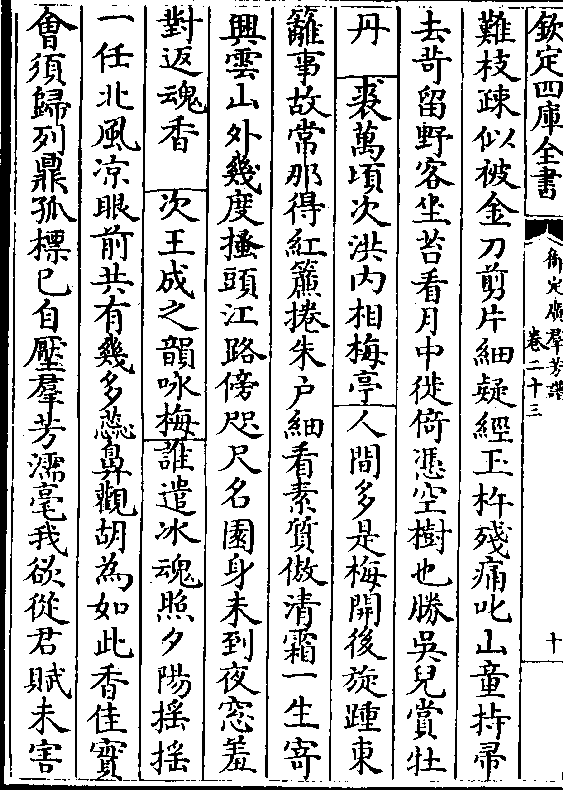 欽定四庫全書
御定廣羣芳譜
卷二十三
十
難枝疎似被金刀剪片細疑經玉杵殘痛叱山童持帚
去苛留野客坐苔看月中徙倚憑空樹也勝吳兒賞牡
丹 裘萬頃次洪内相梅亭人間多是梅開後旋踵東
籬事故常那得紅簾捲朱户細看素質傲清霜一生寄
興雲山外幾度搔頭江路傍咫尺名園身未到夜窓羞
對返魂香 次王成之韻咏梅誰遣冰魂照夕陽搖搖
一任北風凉眼前共有幾多蘂鼻觀胡為如此香佳實
會須歸列鼎孤標已自壓羣芳濡毫我欲從君賦未害